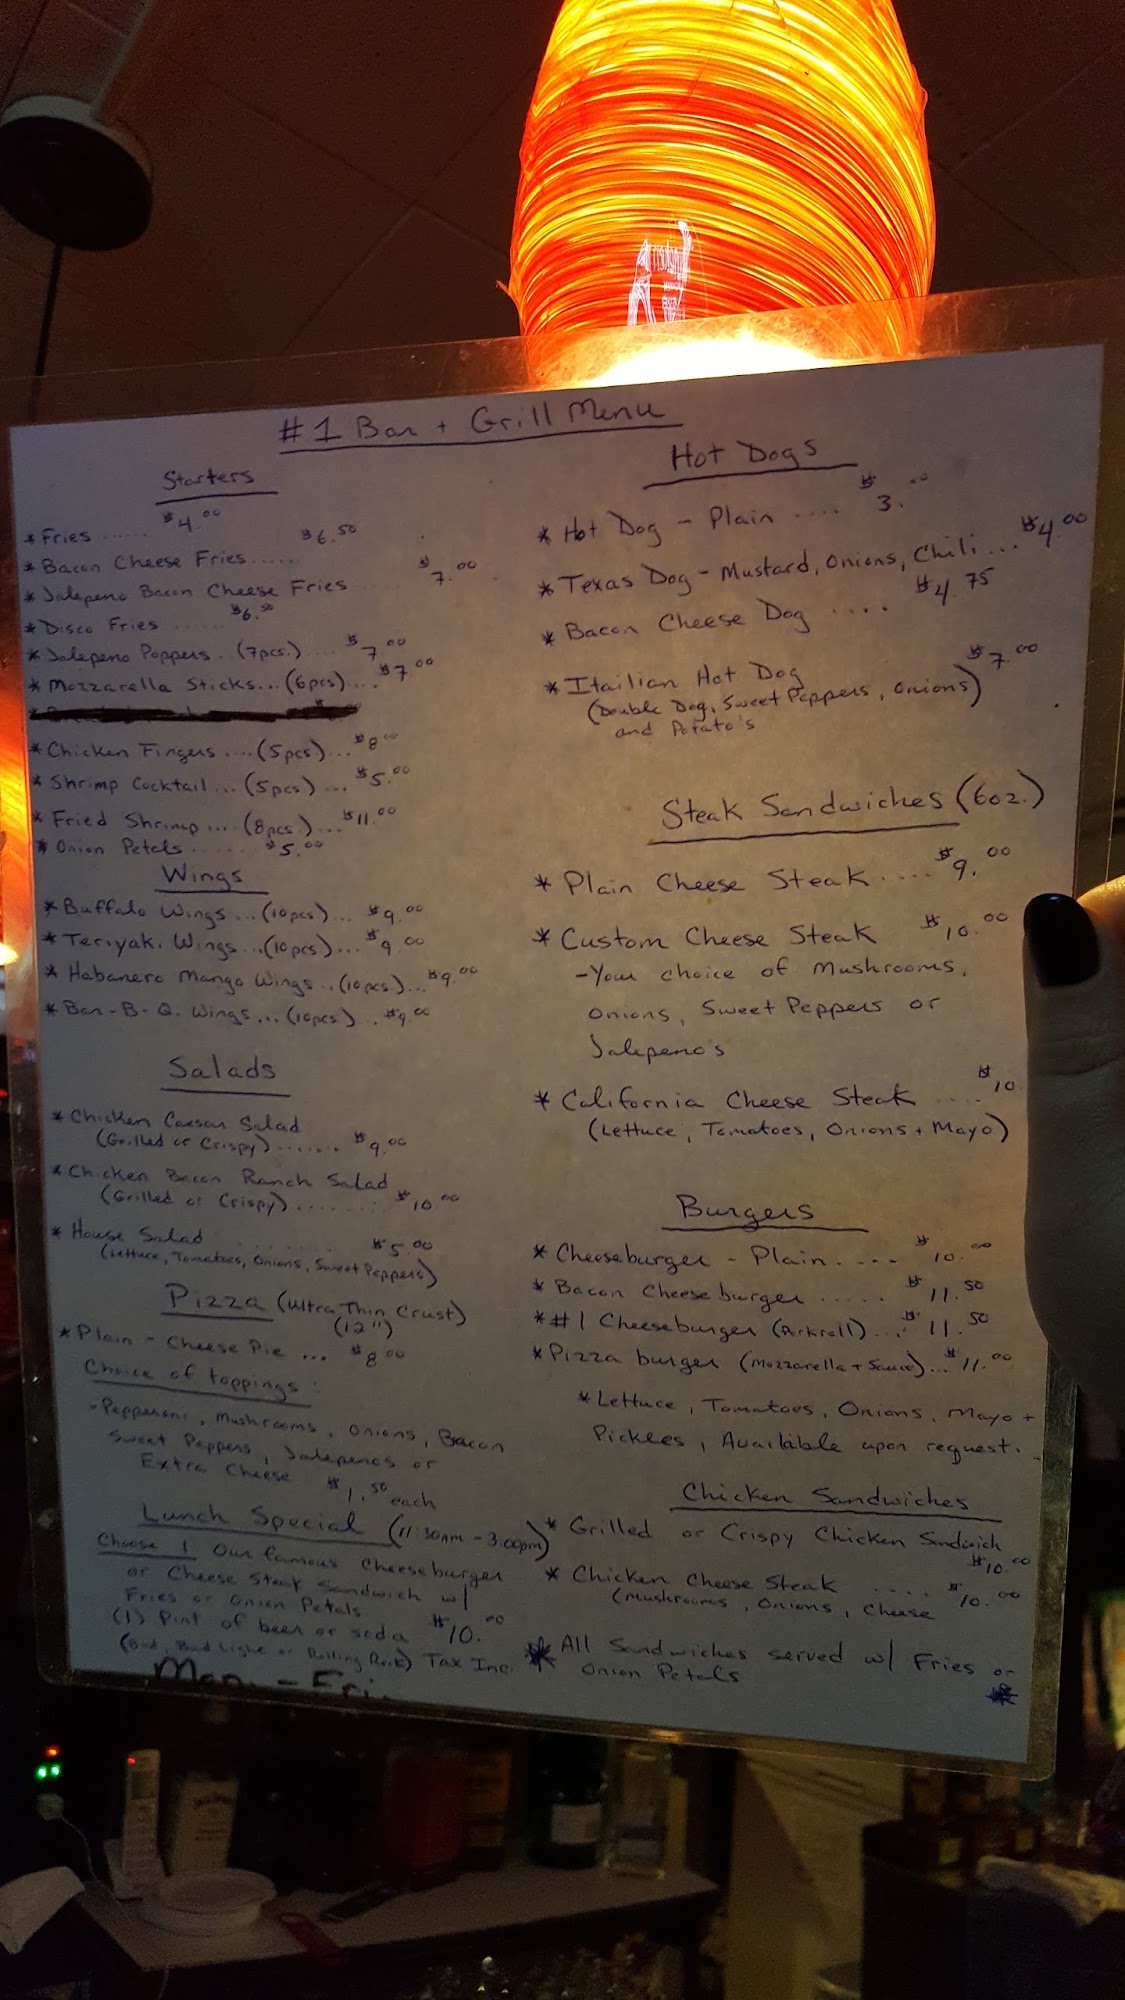 #1 Bar + Grill Menu
Starters
* Fries ...... $4.00
* Bacon Cheese Fries...... $6.50
* Jalepeno Bacon Cheese Fries $7.00
* Disco Fries ...... $6.50
* Jalepeno Poppers..(7pcs.).... $7.00
* Mozzarella Sticks...(6pcs)... $7.00
* Chicken Fingers ....(5pcs.)... $8.00
* Shrimp Cocktail ...(5pcs) ... $5.00
* Fried Shrimp ... (8pcs.)... $11.00
* Onion Petals ....... $5.00
Wings
* Buffalo Wings ...(10pcs)... $9.00
* Teriyaki Wings ...(10pcs)... $9.00
* Habanero Mango Wings ..(10pcs.)... $9.00
* Bar-B-Q. Wings ...(10pcs.) .. $9.00
Salads
* Chicken Caesar Salad
(Grilled or Crispy) ....... $9.00
* Chicken Bacon Ranch Salad
(Grilled or Crispy) ........ $10.00
* House Salad ........ $5.00
(Lettuce, Tomatoes, Onions, Sweet Peppers)
Pizza (Ultra Thin Crust)
(12")
* Plain - Cheese Pie ... $8.00
Choice of toppings:
- Pepperoni, Mushrooms, Onions, Bacon
Sweet Peppers, Jalepenos or
Extra Cheese $1.50 each
Lunch Special (11:30AM - 3:00pm)
Choose 1 Our famous Cheeseburger
or Cheese Steak Sandwich w/
Fries or Onion Petals
(1) Pint of beer or soda $10.00
(Bud, Bud Light or Rolling Rock) Tax Inc.
Mon. - Fri.
Hot Dogs
* Hot Dog - Plain .... $3.00
* Texas Dog - Mustard, Onions, Chili... $4.00
* Bacon Cheese Dog .... $4.75
* Itailian Hot Dog $7.00
(Double Dog, Sweet Peppers, Onions)
and Potato's
Steak Sandwiches (6oz.)
* Plain Cheese Steak .... $9.00
* Custom Cheese Steak $10.00
- Your choice of Mushrooms,
Onions, Sweet Peppers or
Jalepeno's
* California Cheese Steak .... $10
(Lettuce, Tomatoes, Onions + Mayo)
Burgers
* Cheeseburger - Plain.... $10.00
* Bacon Cheeseburger ..... $11.50
* #1 Cheeseburger (Porkroll)... $11.50
* Pizza burger (Mozzarella + Sauce)... $11.00
* Lettuce, Tomatoes, Onions, Mayo +
Pickles, Available upon request.
Chicken Sandwiches
* Grilled or Crispy Chicken Sandwich
$10.00
* Chicken Cheese Steak .... $10.00
(Mushrooms, Onions, Cheese
* All Sandwiches served w/ Fries or
Onion Petals *